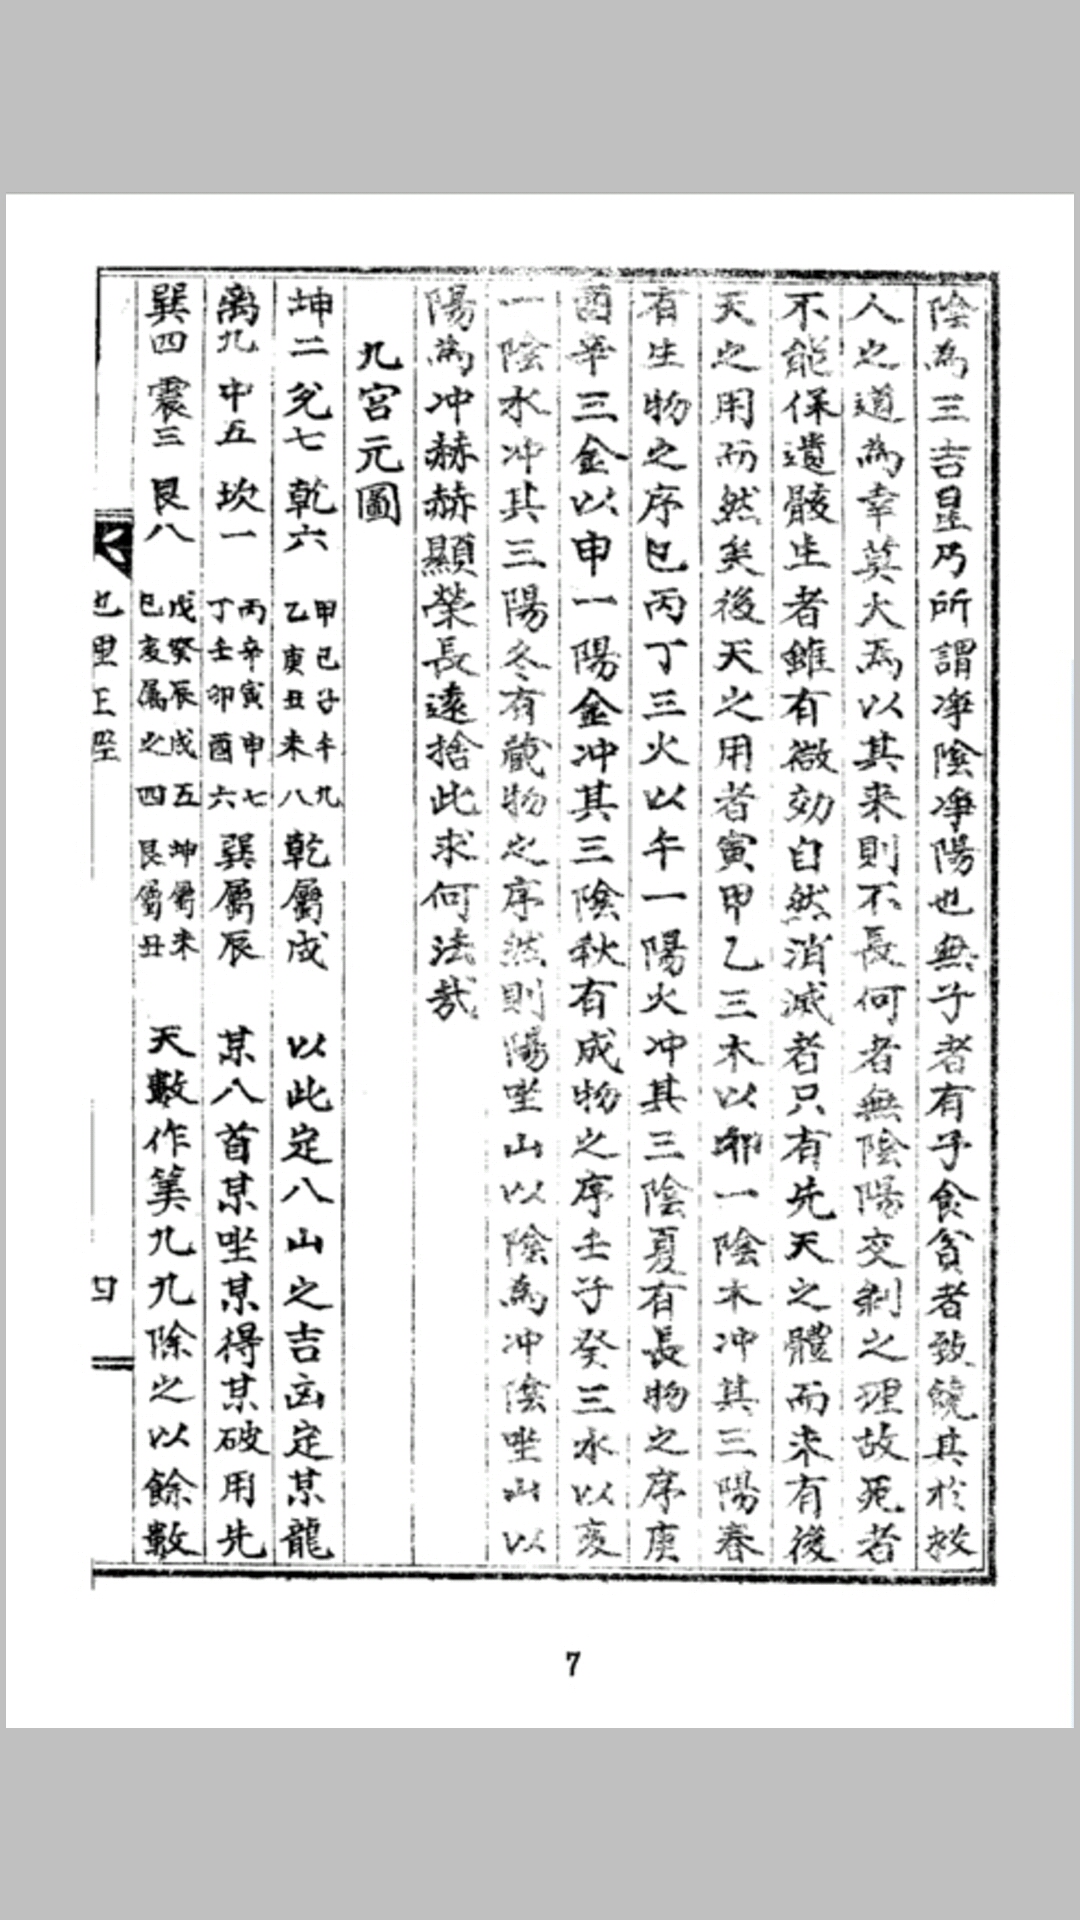 陰為三吉星乃所謂淨陰淨陽也無子者有子食貧者致饒其於救
人之道為幸莫大焉以其来則不長何者無陰陽交剝之理故死者
不能保遺骸生者雖有微効自然消滅者只有先天之體而未有後
天之用而然矣後天之用者寅甲乙三木以卯一陰木冲其三陽春
有生物之序巳丙丁三火以午一陽火冲其三陰夏有長物之序庚
酉辛三金以申一陽金冲其三陰秋有成物之序壬子癸三水以亥
一陰水冲其三陽冬有藏物之序然則陽坐山以陰為冲陰坐山以
陽為冲赫赫顯榮長遠捨此求何法哉
九宮元圖
坤二兌七乾六 甲己子午九 乙庚丑未八 乾屬戌 以此定八山之吉凶定某龍
离九中五坎一 丙辛寅申七 丁壬卯酉六 巽屬辰 某八首某坐某得某破用先
巽四震三艮八 戊癸辰戌五 巳亥属之四 坤屬未 艮屬丑 天數作筭九九除之以餘數
四
7